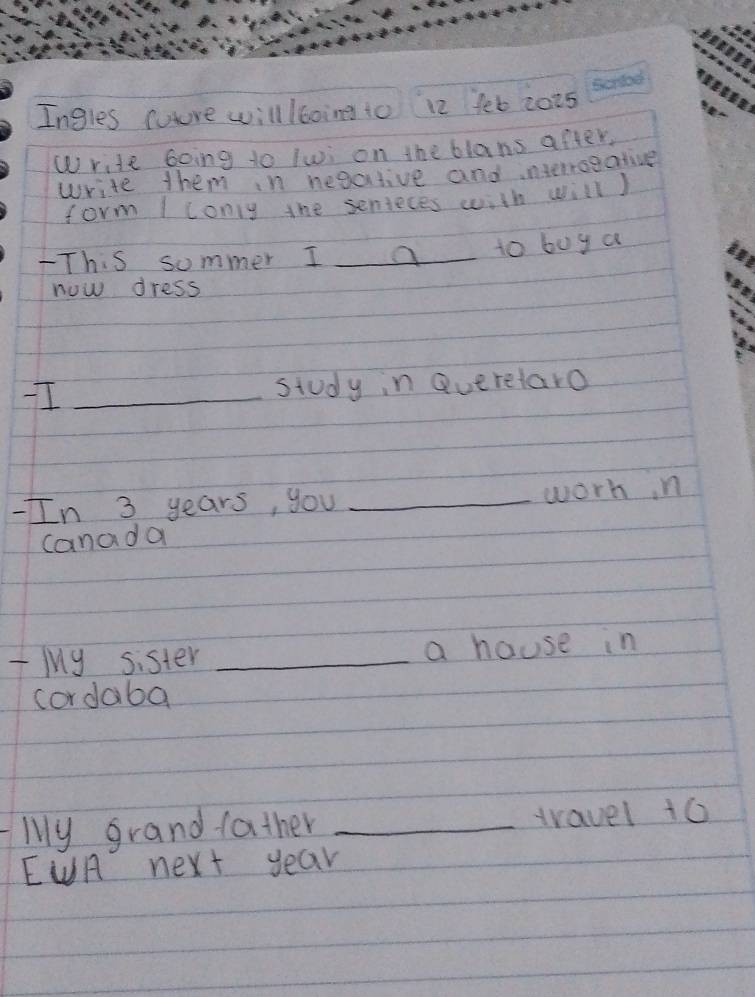 Ingles Future will/Going to 12 feb 2025
write Going to /wi on the blans after,
write them in negative and interrogative
form / (only the senteces with will)
-This sommer I ___a___ to buy a
now dress
-I ________ study in Queretaro
-In 3 years, you ________ work in
canada
- My sister ________ a hause in
cordaba
- My grandfather ________ travel to
EWA next year